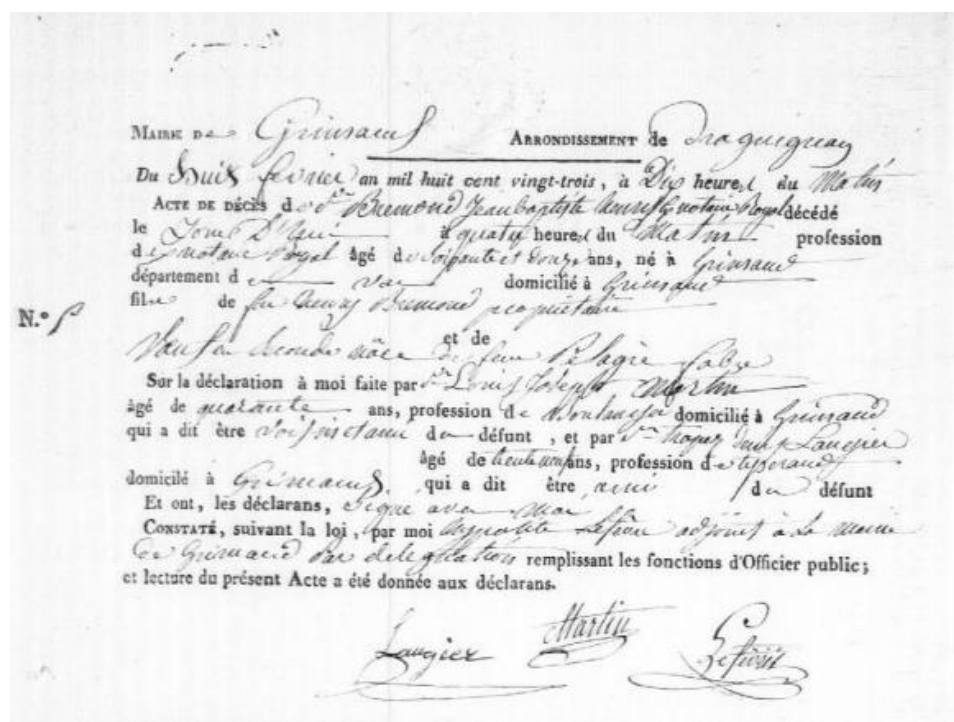 MAIRIE DE Grimaud ARRONDISSEMENT de Draguignan
Du huit février an mil huit cent vingt-trois, à Dix heures du Matin
ACTE DE DÉCÈS de Sr. Bremond Jean baptiste notaire Royal décédé
le Jour D'hui à quatre heures du Matin profession
de notaire Royal âgé de soixante et douze ans, né à Grimaud
département de var domicilié à Grimaud
fils de feu Bremond propriétaire
N.° 5
et de
Veuf en seconde nôce de feue Pélagie fabre
Sur la déclaration à moi faite par Sr. Louis Joseph Martin
âgé de quarante ans, profession de domicilié à Grimaud
qui a dit être du défunt, et par Sr. tropez Laugier
âgé de ans, profession de tisserand
domicilé à Grimaud qui a dit être ami du défunt
Et ont, les déclarans, signé avec moi
CONSTATÉ, suivant la loi, par moi adjoint à la mairie
de Grimaud par délégation remplissant les fonctions d'Officier public;
et lecture du présent Acte a été donnée aux déclarans.
Laugier Martin